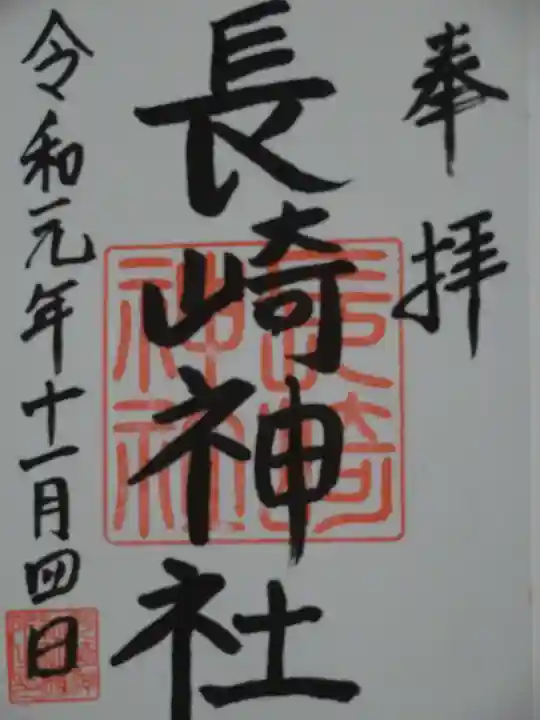 奉拝
長崎神社
令和元年十一月四日
長崎
神社